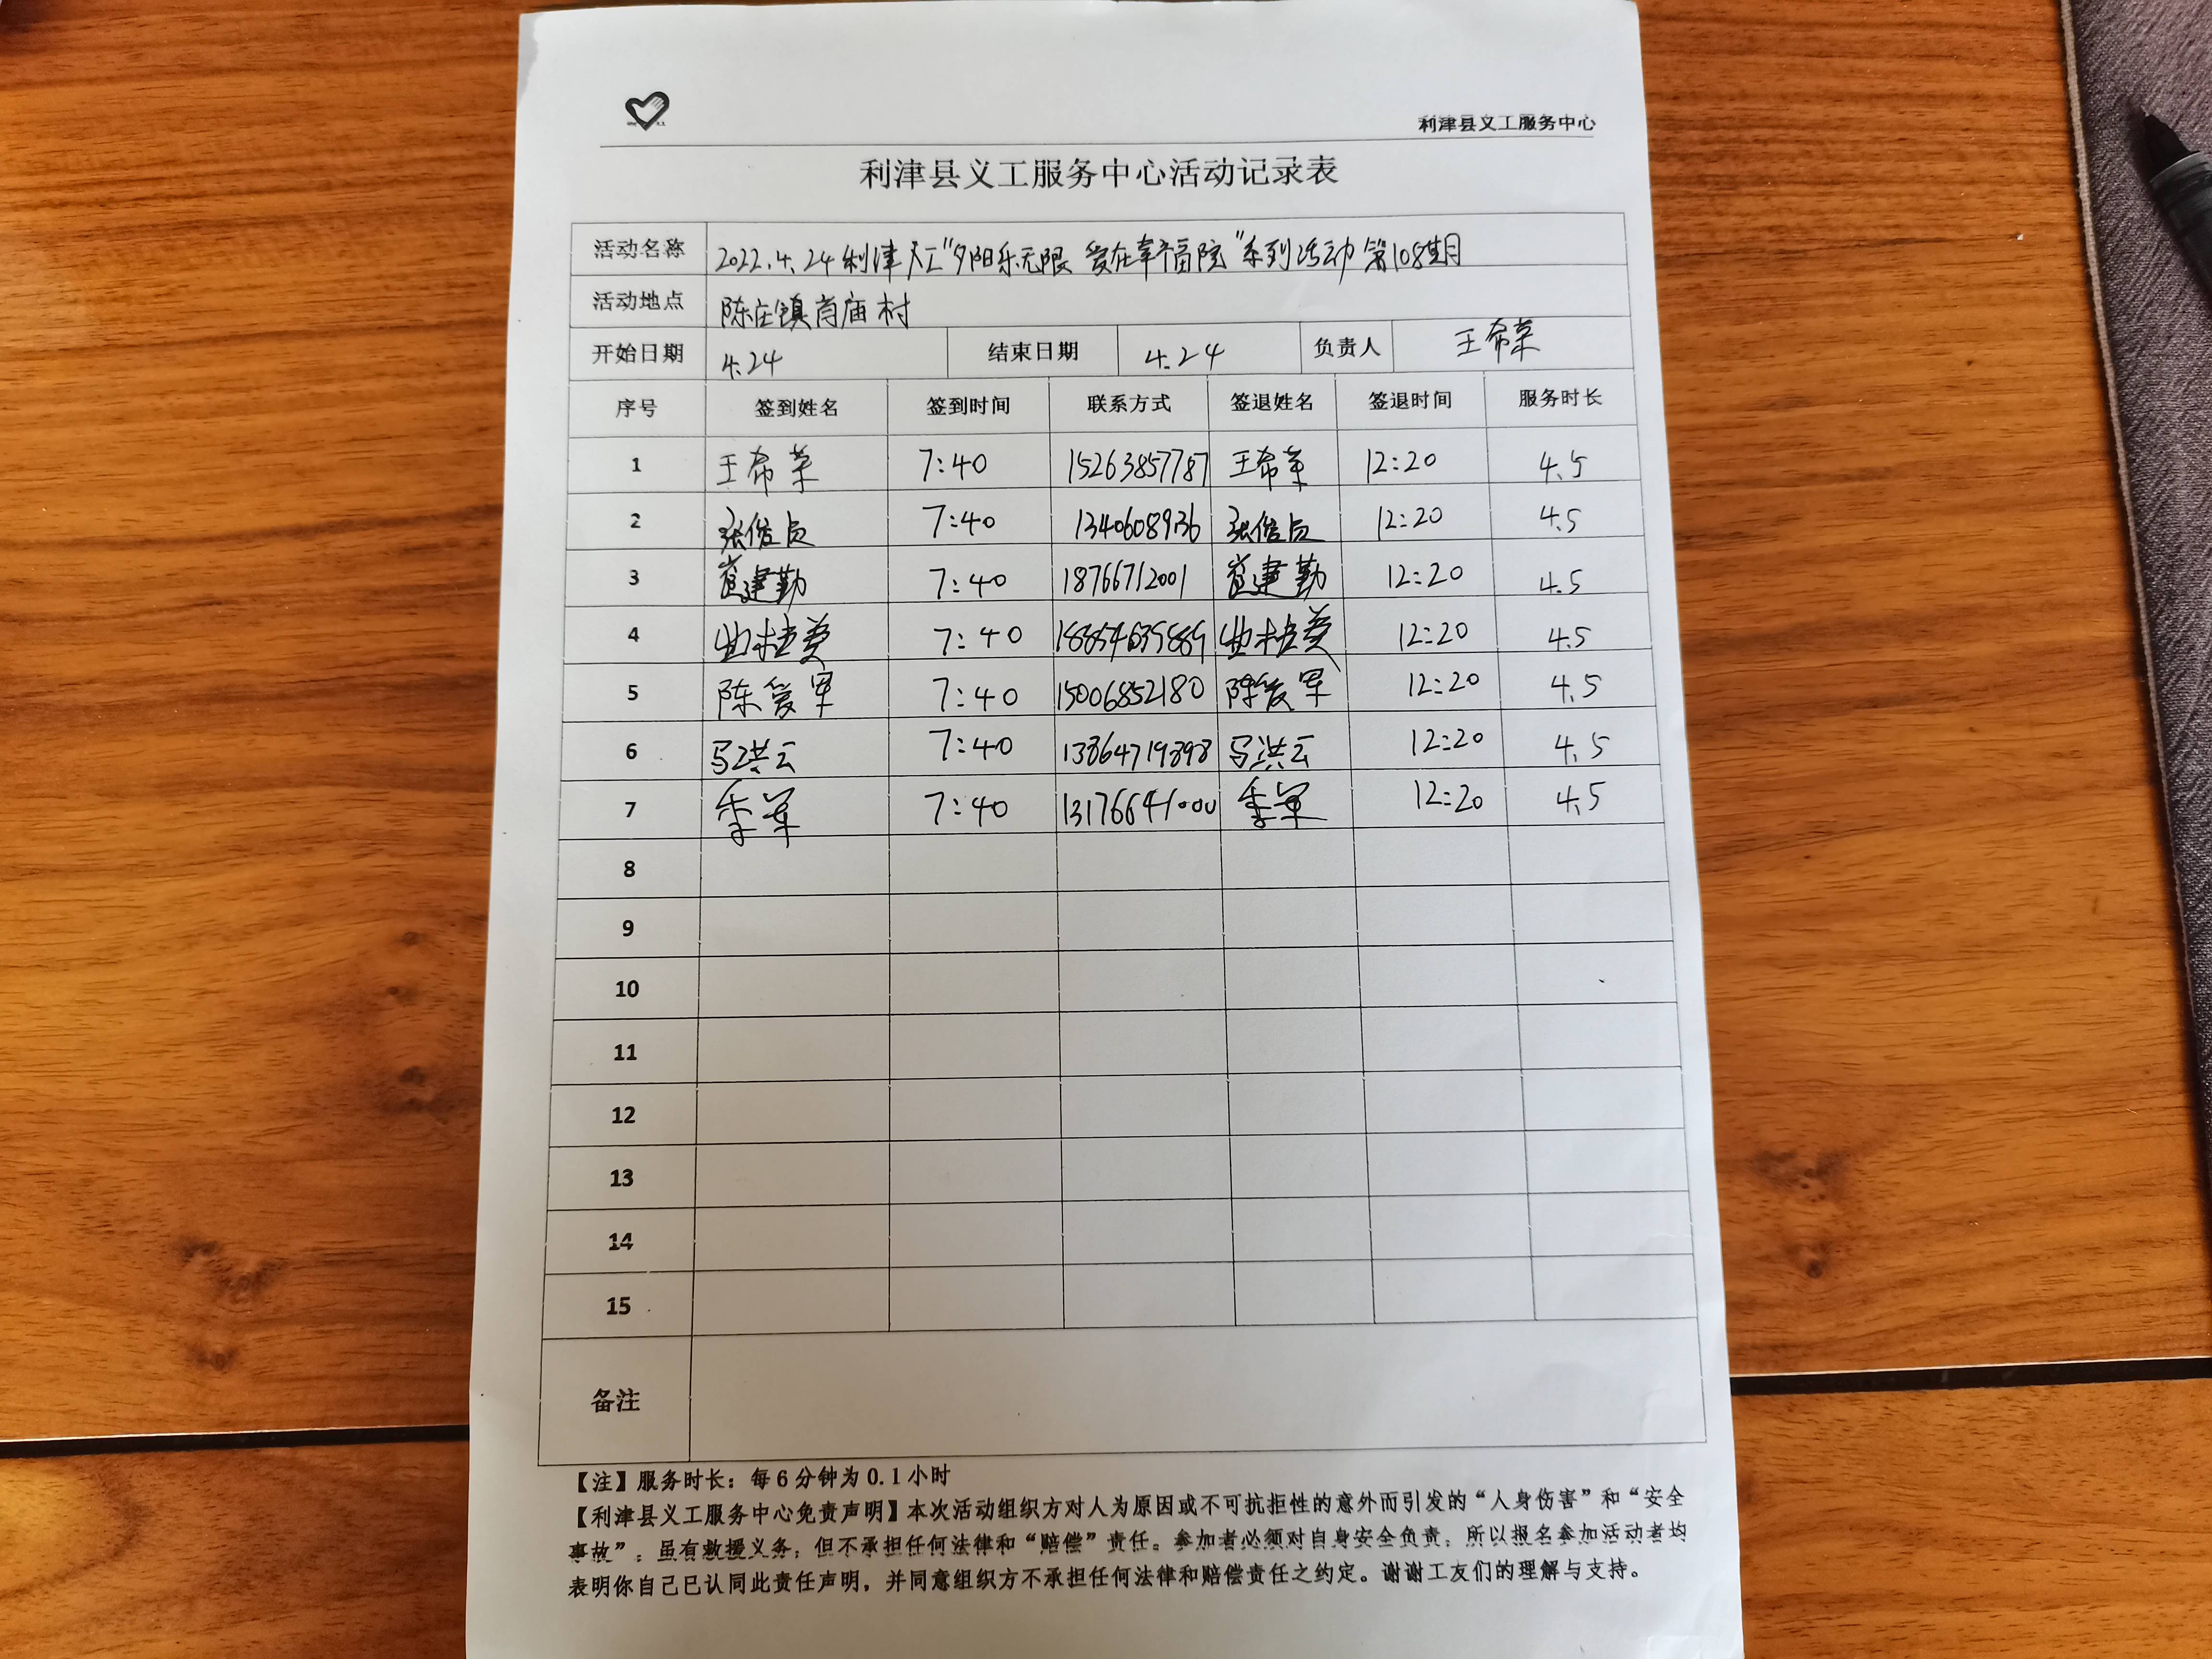 利津县义工服务中心
利津县义工服务中心活动记录表
活动名称 2022.4.24利津义工"夕阳乐无限 爱在幸福院"系列活动第108期
活动地点 陈庄镇肖庙村
开始日期 4.24 结束日期 4.24 负责人 王希荣
序号 签到姓名 签到时间 联系方式 签退姓名 签退时间 服务时长
1 王希荣 7:40 15263857787 王希荣 12:20 4.5
2 7:40 12:20 4.5
3 崔建勤 7:40 18766712001 崔建勤 12:20 4.5
4 曲桂美 7:40 曲桂美 12:20 4.5
5 陈爱军 7:40 15006852180 陈爱军 12:20 4.5
6 马洪云 7:40 13864719898 马洪云 12:20 4.5
7 季军 7:40 13176641000 季军 12:20 4.5
8
9
10
11
12
13
14
15
备注
【注】服务时长：每6分钟为0.1小时
【利津县义工服务中心免责声明】本次活动组织方对人为原因或不可抗拒性的意外而引发的“人身伤害”和“安全
事故”，虽有救援义务，但不承担任何法律和“赔偿”责任。参加者必须对自身安全负责，所以报名参加活动者均
表明你自己已认同此责任声明，并同意组织方不承担任何法律和赔偿责任之约定。谢谢工友们的理解与支持。